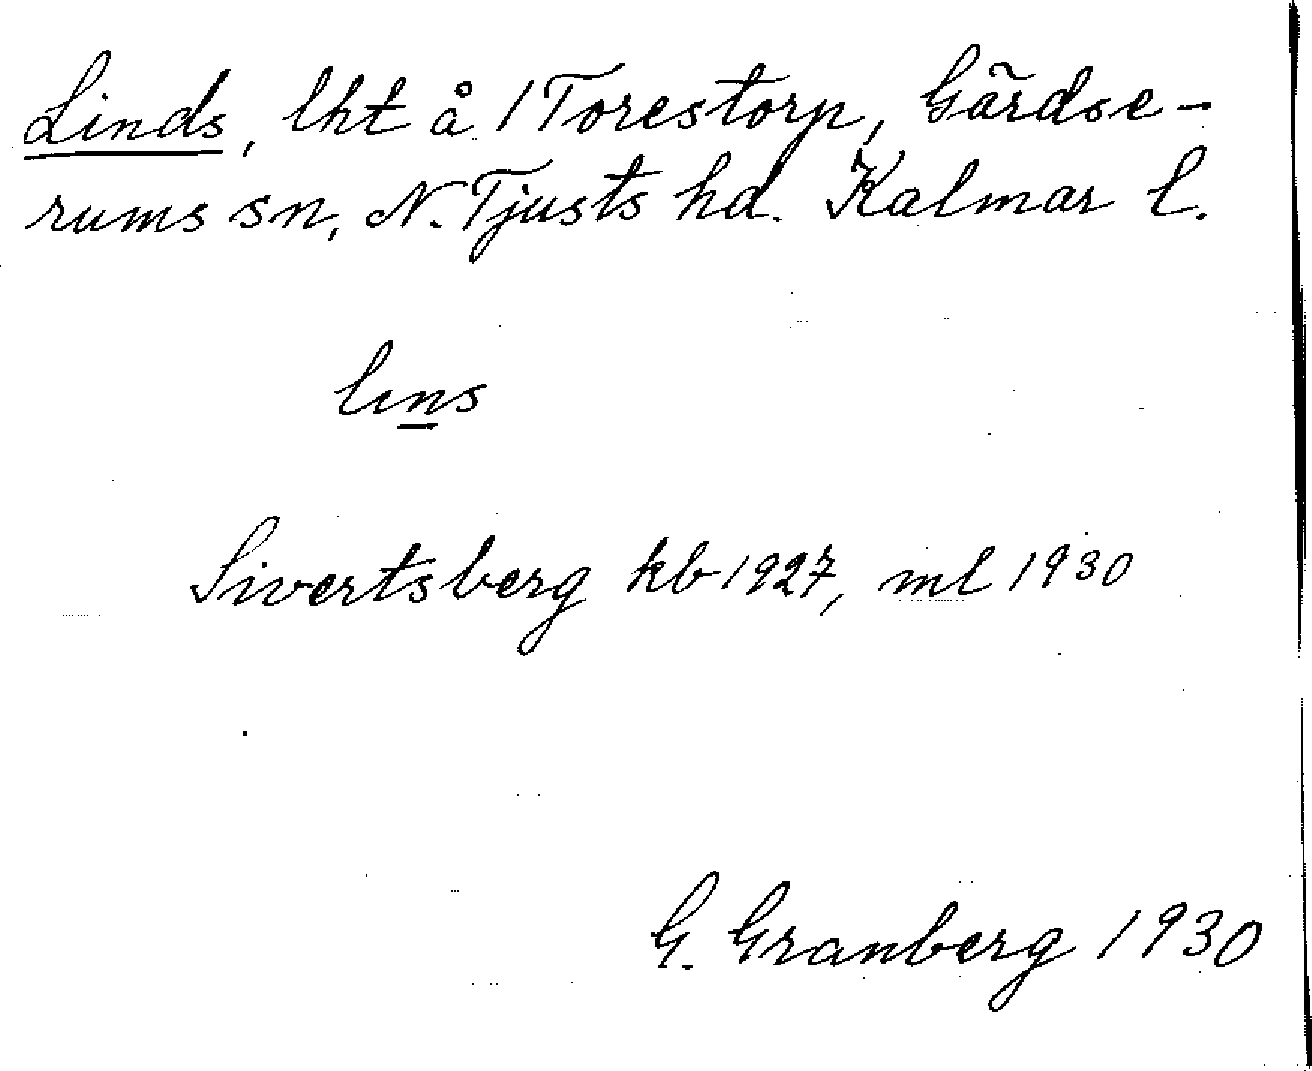 Linds, lht å 1 Torestorp, Gärdse-
rums sn, N. Tjusts hd. Kalmar l.
lıns
Sivertsberg kb 1927, ml 1930
G. Granberg 1930